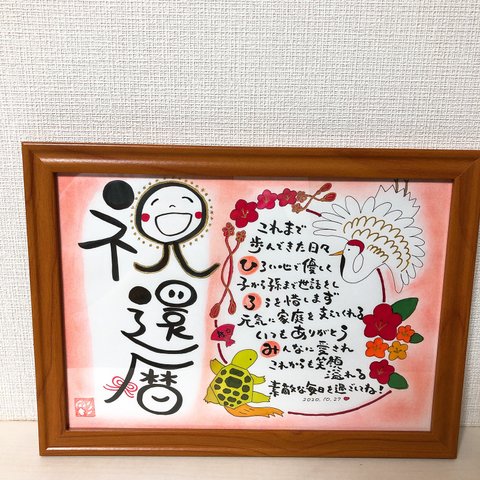 祝
還
暦
これまで
歩んできた日々
ひろい心で優しく
子から孫まで世話をし
ろうを惜しまず
元気に家庭を支えてくれる
いつもありがとう
みんなに愛され
これからも笑顔
溢れる
素敵な毎日を過ごしてね!
2020.10.27